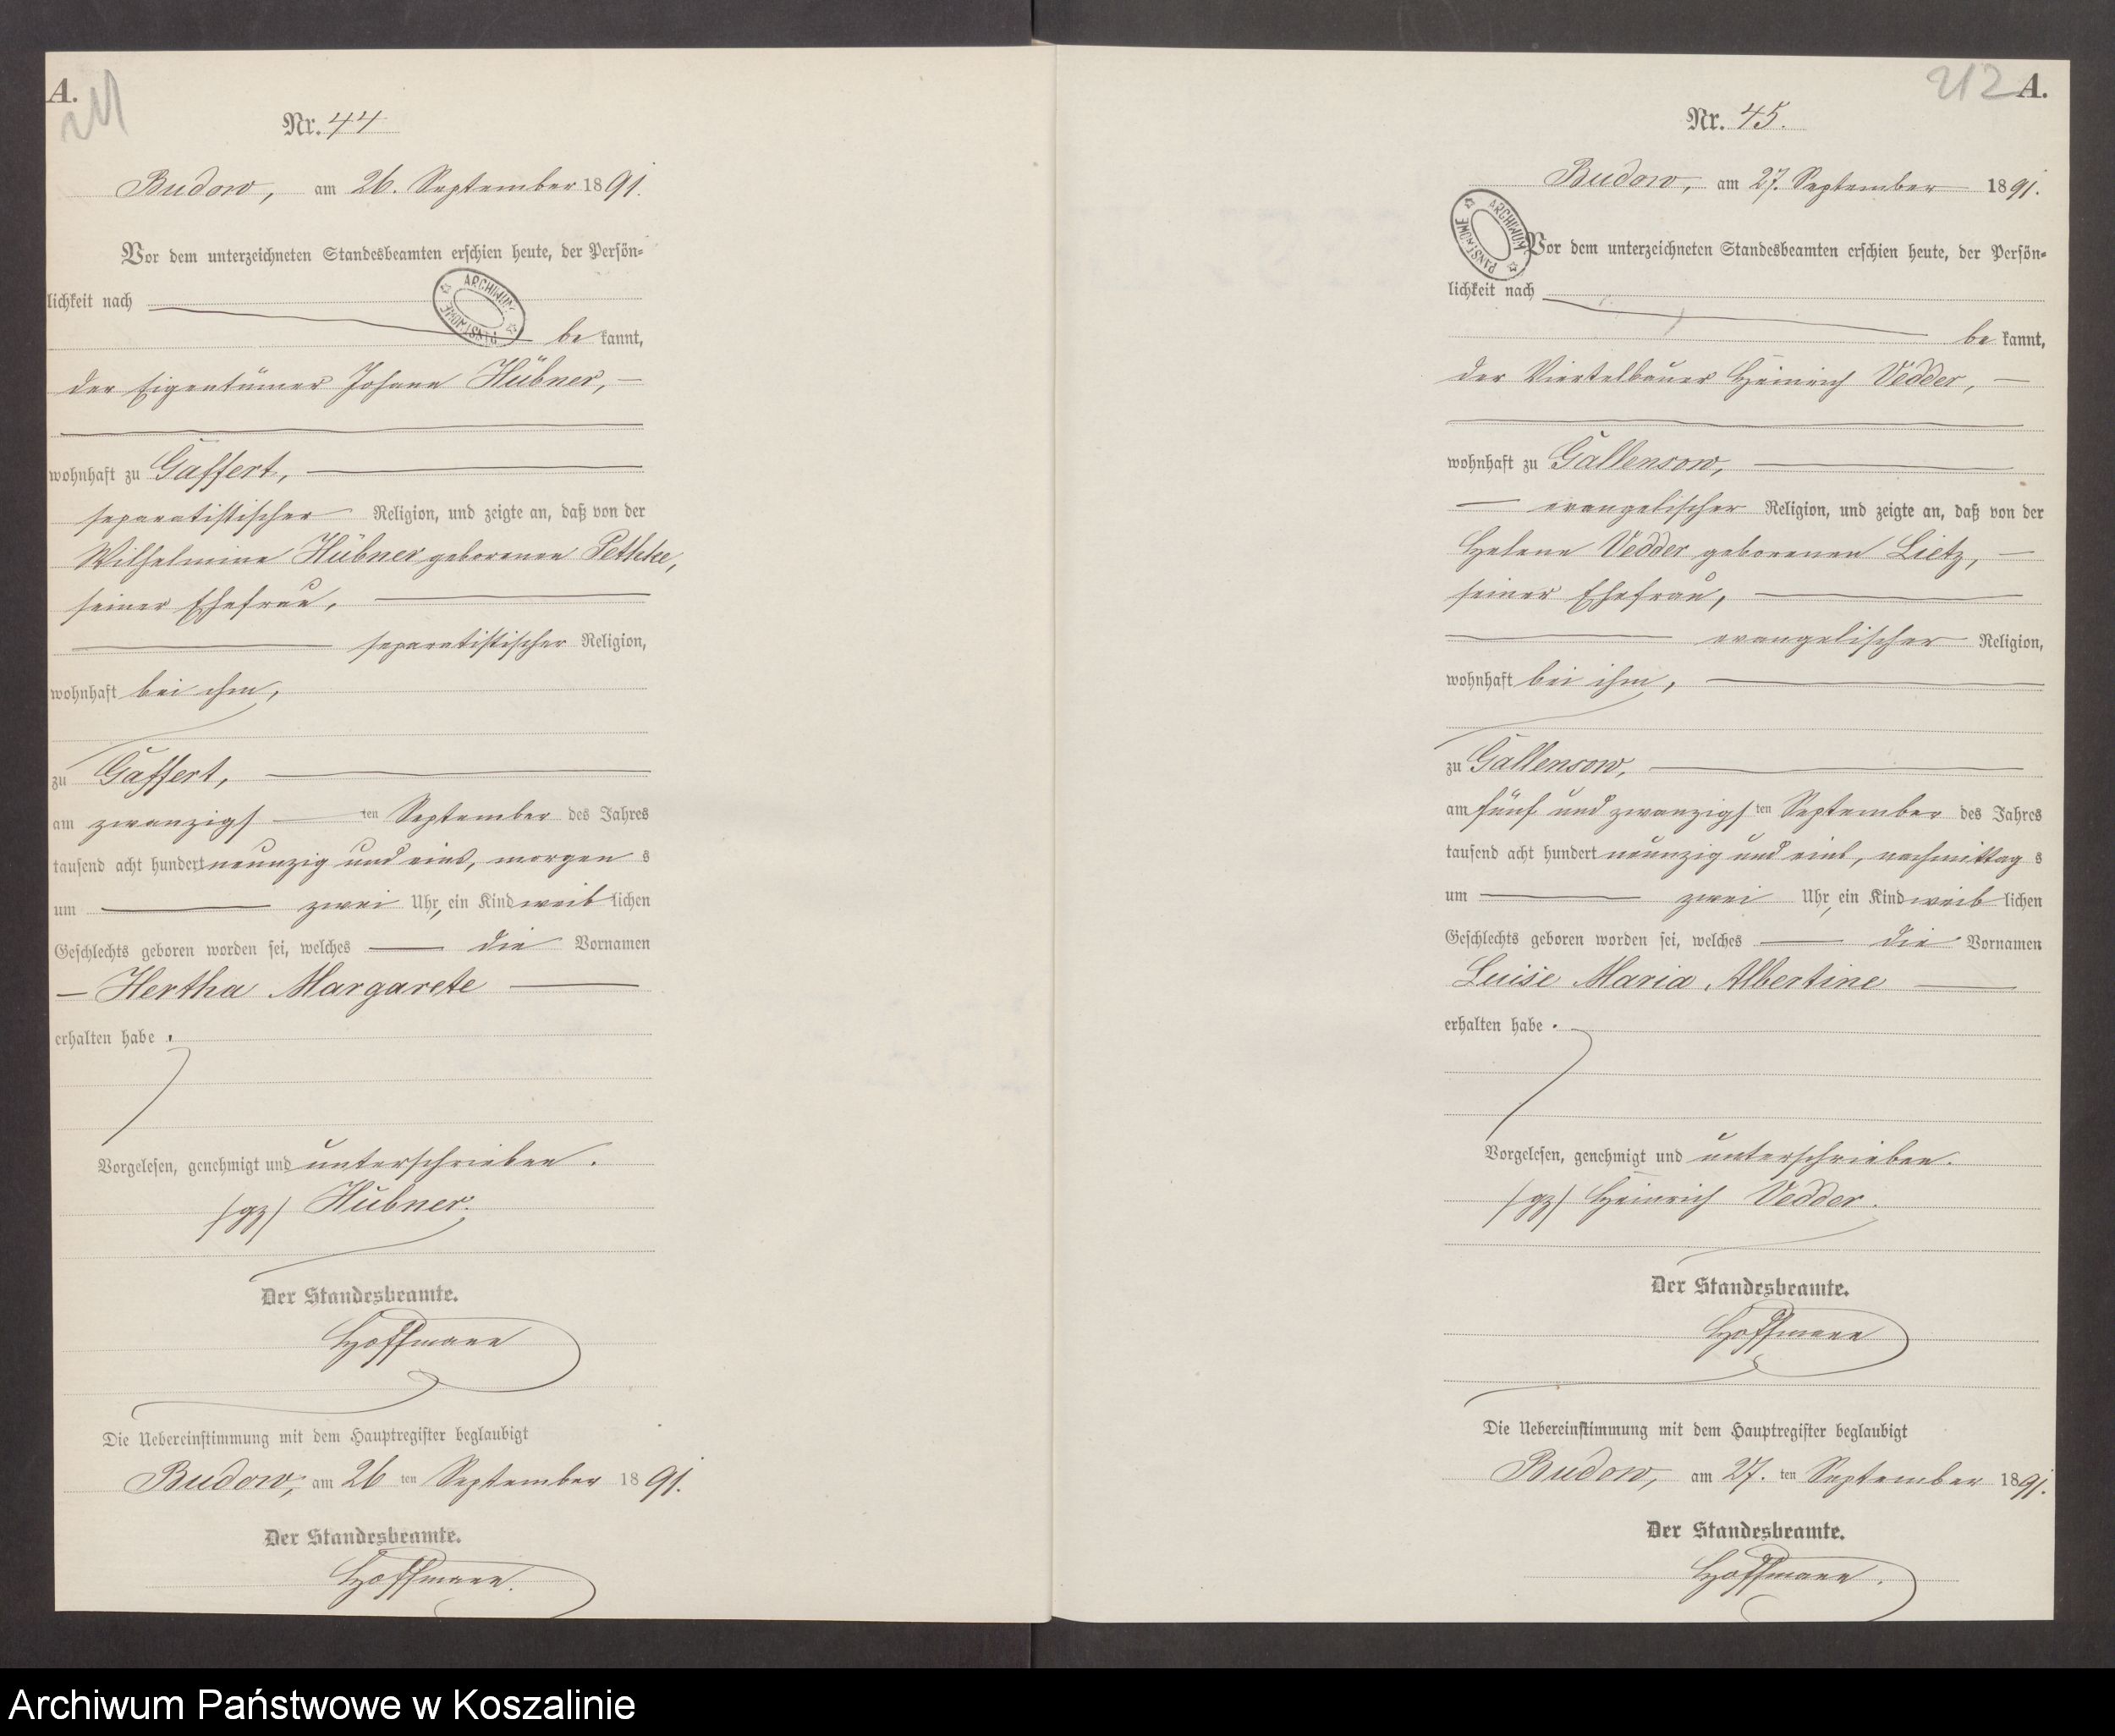 A.
211
Nr. 44
Budow, am 26. September 1891.
Vor dem unterzeichneten Standesbeamten erschien heute, der Persön-
lichkeit nach
ARCHIWUM PAŃSTWOWE
be kannt,
der Eigentümer Johann Hübner,
wohnhaft zu Gaffert,
separatistischer Religion, und zeigte an, daß von der
Wilhelmine Hübner geborenen Pethke,
seiner Ehefrau,
separatistischer Religion,
wohnhaft bei ihm,
zu Gaffert,
am zwanzigsten September des Jahres
tausend acht hundert neunzig und eins, morgens
um zwei Uhr, ein Kind weiblichen
Geschlechts geboren worden sei, welches die Vornamen
Hertha Margarete
erhalten habe.
Vorgelesen, genehmigt und unterschrieben.
/gz/ Hübner.
Der Standesbeamte.
Hoffmann
Die Uebereinstimmung mit dem Hauptregister beglaubigt
Budow, am 26ten September 1891.
Der Standesbeamte.
Hoffmann.
212 A.
Nr. 45.
Budow, am 27. September 1891.
ARCHIWUM PAŃSTWOWE
Vor dem unterzeichneten Standesbeamten erschien heute, der Persön-
lichkeit nach
be kannt,
der Viertelbauer Heinrich Vedder,
wohnhaft zu Gallensow,
evangelischer Religion, und zeigte an, daß von der
Helene Vedder geborenen Lietz,
seiner Ehefrau,
evangelischer Religion,
wohnhaft bei ihm,
zu Gallensow,
am fünf und zwanzigsten September des Jahres
tausend acht hundert neunzig und eins, nachmittags
um zwei Uhr, ein Kind weiblichen
Geschlechts geboren worden sei, welches die Vornamen
Luise Maria Albertine
erhalten habe.
Vorgelesen, genehmigt und unterschrieben.
/gz/ Heinrich Vedder.
Der Standesbeamte.
Hoffmann
Die Uebereinstimmung mit dem Hauptregister beglaubigt
Budow, am 27.ten September 1891.
Der Standesbeamte.
Hoffmann.
Archiwum Państwowe w Koszalinie